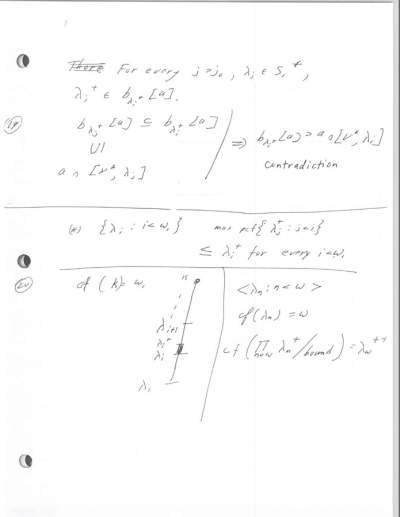 There For every j > j₀, λⱼ ∈ S₁*,
λⱼ⁺ ∈ b_{λⱼ⁺}[a].
19
b_{λⱼ⁺}[a] ⊆ b_{λⱼ⁺}[a]
UI
a ∩ [ν*, λⱼ]
⇒ b_{λⱼ⁺}[a] ⊃ a ∩ [ν*, λⱼ]
Contradiction
(*) {λᵢ : i < ω₁} max pcf{λⱼ⁺ : j < i}
≤ λᵢ⁺ for every i < ω₁
20
cf(κ) = ω₁
κ
λᵢ₊₁
λᵢ⁺
λᵢ
<λₙ : n < ω>
cf(λₙ) = ω
cf(∏_{n<ω} λₙ⁺/bound) = λ_ω⁺⁺